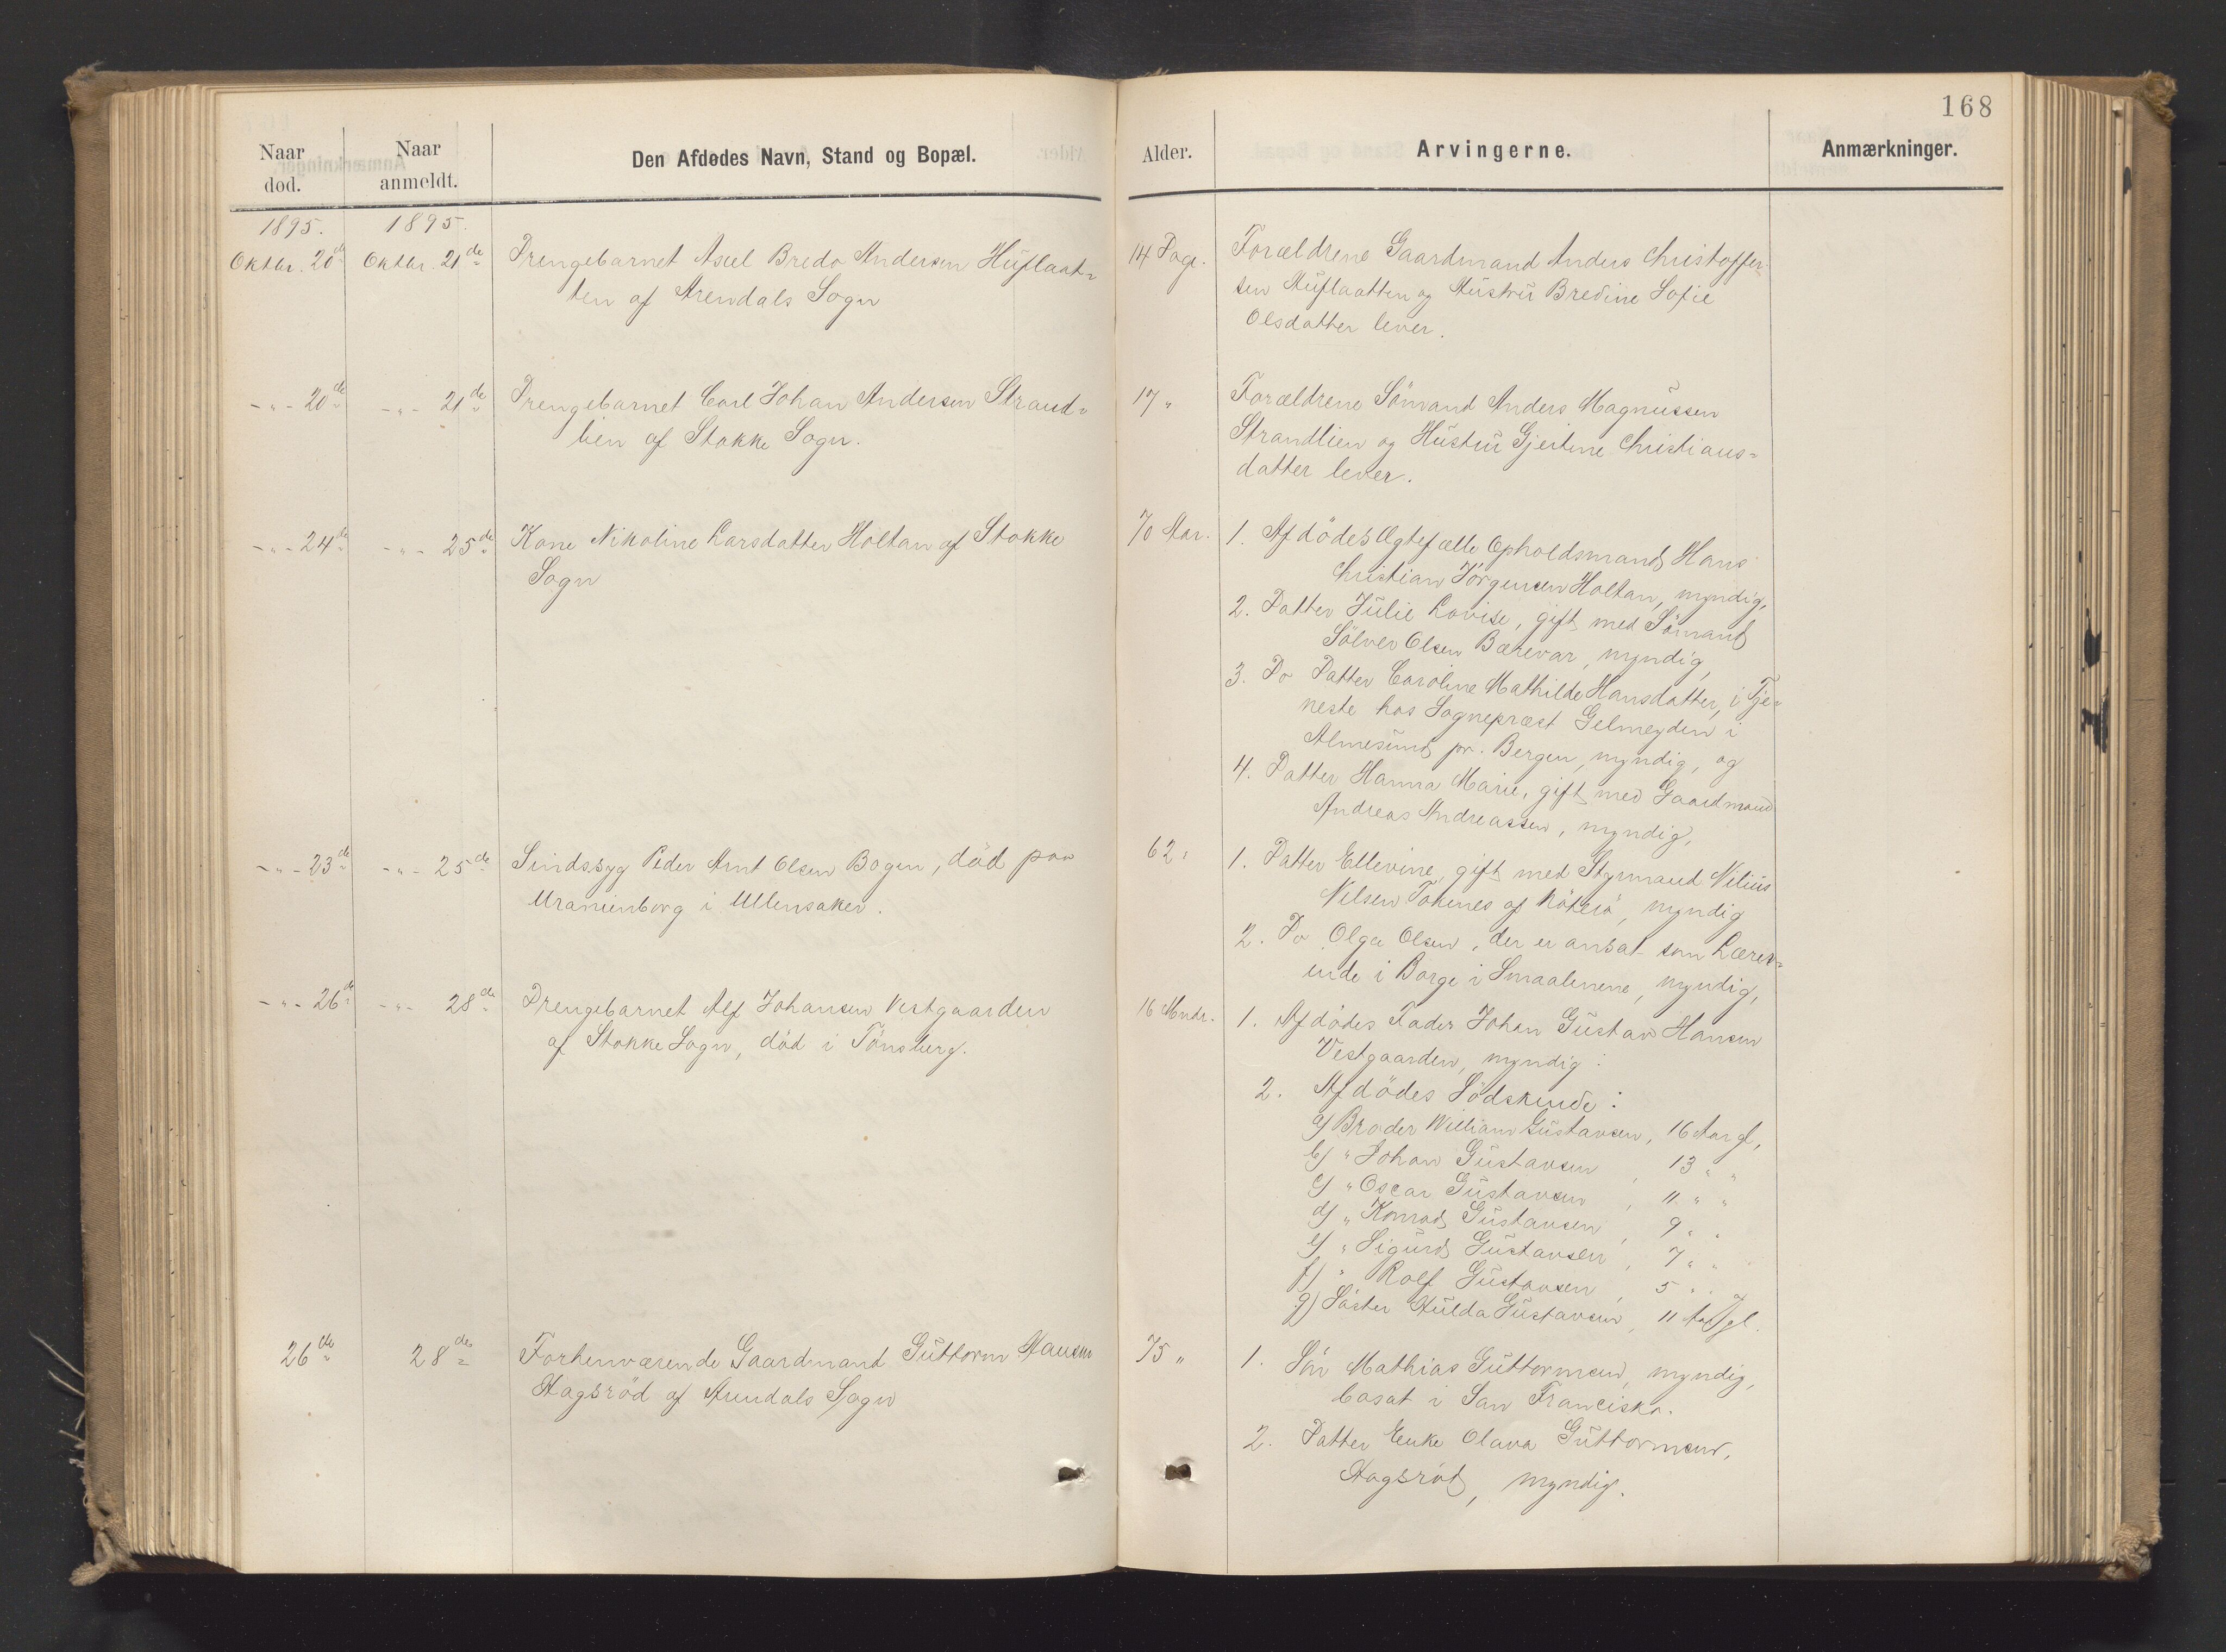 168
Naar død.
Naar anmeldt.
Den Afdødes Navn, Stand og Bopæl.
Alder.
Arvingerne.
Anmærkninger.
1895. 1895.
Oktbr. 20de Oktbr. 21de Drengebarnet Axel Bredo Andersen Huflaat=
ten af Arendals Sogn
14 Dage. Forældrene Gaardmand Anders Christoffer-
sen Huflaatten og Hustru Bredine Sofie
Olsdatter lever.
-„- 20de -„- 21de Drengebarnet Carl Johan Andersen Strand=
lien af Stokke Sogn.
17 „ Forældrene Sömand Anders Magnussen
Strandlien og Hustru Gjertine Christians=
datter lever.
-„- 24de -„- 25de Kone Nikoline Larsdatter Holtan af Stokke
Sogn
70 Aar. 1. Afdödes Ægtefælle Opholdsmand Hans
Christian Jörgensen Holtan, myndig,
2. Datter Julie Lovise, gift med Sömand
Sölver Olsen Bærevar, myndig,
3. Do Datter Caroline Mathilde Hansdatter, i Tje=
neste hos Sognepræst Gelmeyden i
Almesund pr. Bergen, myndig, og
4. Datter Hanna Marie, gift med Gaardmand
Andreas Andreassen, myndig,
-„- 23de -„- 25de Sindssyg Peder Arnt Olsen Bogen, död paa
Uranienborg i Ullensaker.
62 „ 1. Datter Ellevine, gift med Styrmand Nilius
Nilsen Tokenes af Nöterö, myndig
2. Do Olga Olsen, der er ansat som Lærer=
inde i Borge i Smaalenene, myndig,
-„- 26de -„- 28de Drengebarnet Alf Johansen Vestgaarden
af Stokke Sogn, död i Tönsberg.
16 Mndr. 1. Afdödes Fader Johan Gustav Hansen
Vestgaarden, myndig:
2. Afdödes Södskende:
a) Broder William Gustavsen, 16 Aar gl,
b) „ Johan Gustavsen, 13 „ „
c) „ Oscar Gustavsen, 11 „ „
d) „ Konrad Gustavsen, 9 „ „
e) „ Sigurd Gustavsen, 7 „ „
f) „ Rolf Gustavsen, 5 „ „ og
g) Söster Hulda Gustavsen, 11 Aar gl.
26de 28de Forhenværende Gaardmand Guttorm Hansen
Hagsröd af Arendals Sogn
75 „ 1. Sön Mathias Guttormsen, myndig,
bosat i San Francisko.
2. Datter Enke Olava Guttormsen,
Hagsröd, myndig.